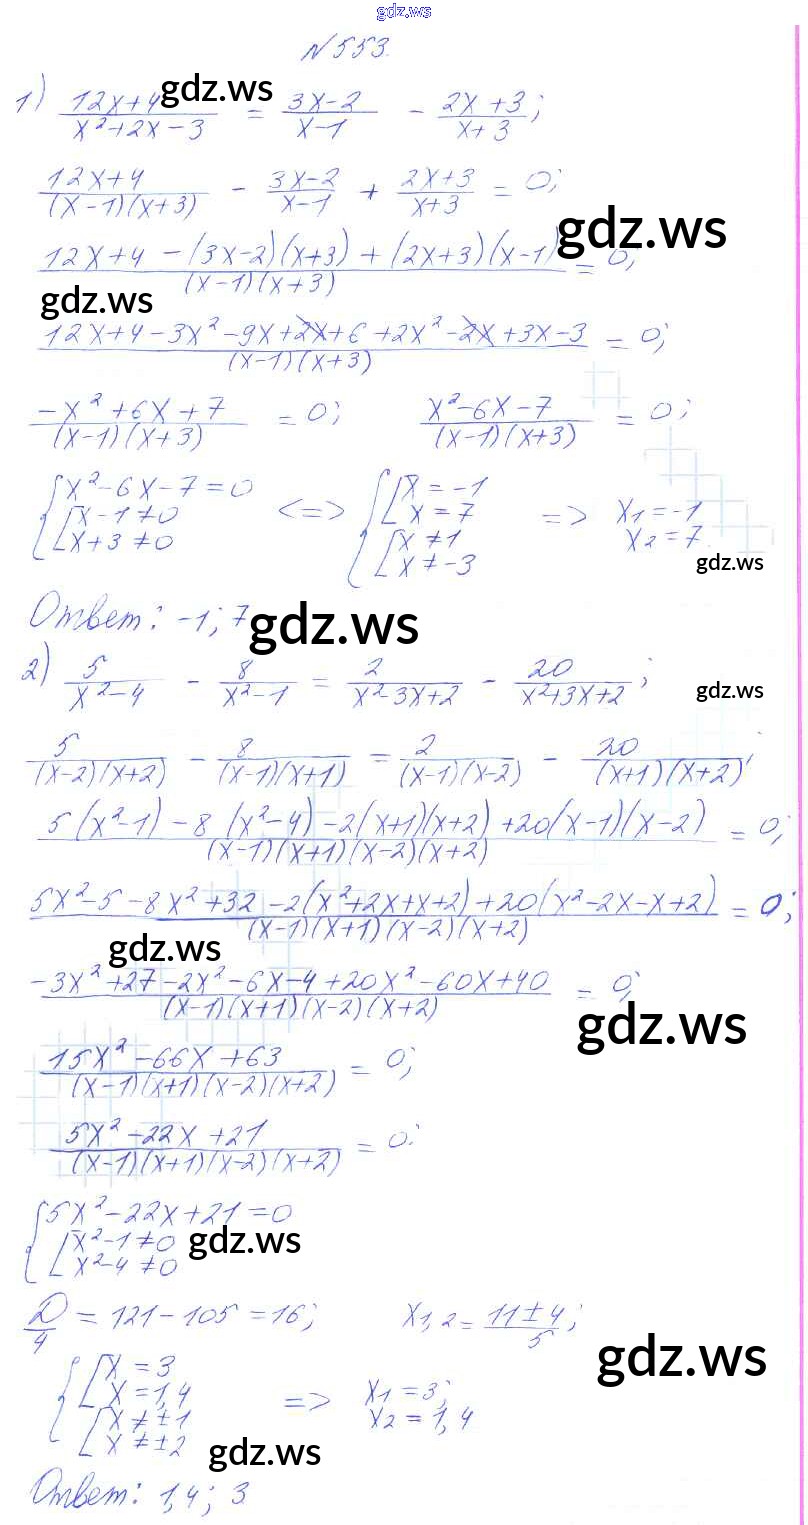 gdz.ws
N 553.
1) (12x+4)/(x²+2x-3) = (3x-2)/(x-1) - (2x+3)/(x+3);
gdz.ws
(12x+4)/((x-1)(x+3)) - (3x-2)/(x-1) + (2x+3)/(x+3) = 0;
gdz.ws
(12x+4-(3x-2)(x+3)+(2x+3)(x-1))/((x-1)(x+3)) = 0;
gdz.ws
(12x+4-3x²-9x+2x+6+2x²-2x+3x-3)/((x-1)(x+3)) = 0;
(-x²+6x+7)/((x-1)(x+3)) = 0; (x²-6x-7)/((x-1)(x+3)) = 0;
{ x²-6x-7=0 <=> { [ x=-1
[ x-1≠0 [ x=7 => x1=-1
[ x+3≠0 [ x≠1 x2=7.
[ x≠-3
gdz.ws
Ответ: -1; 7
gdz.ws
2) 5/(x²-4) - 8/(x²-1) = 2/(x²-3x+2) - 20/(x²+3x+2);
gdz.ws
5/((x-2)(x+2)) - 8/((x-1)(x+1)) = 2/((x-1)(x-2)) - 20/((x+1)(x+2));
(5(x²-1)-8(x²-4)-2(x+1)(x+2)+20(x-1)(x-2))/((x-1)(x+1)(x-2)(x+2)) = 0;
(5x²-5-8x²+32-2(x²+2x+x+2)+20(x²-2x-x+2))/((x-1)(x+1)(x-2)(x+2)) = 0;
gdz.ws
(-3x²+27-2x²-6x-4+20x²-60x+40)/((x-1)(x+1)(x-2)(x+2)) = 0;
gdz.ws
(15x²-66x+63)/((x-1)(x+1)(x-2)(x+2)) = 0;
(5x²-22x+21)/((x-1)(x+1)(x-2)(x+2)) = 0;
{ 5x²-22x+21=0
[ x²-1≠0
[ x²-4≠0
gdz.ws
D/4 = 121-105=16; x1,2 = (11±4)/5;
gdz.ws
{ [ x=3
[ x=1,4 => x1=3;
[ x≠±1 x2=1,4
[ x≠±2
gdz.ws
Ответ: 1,4; 3